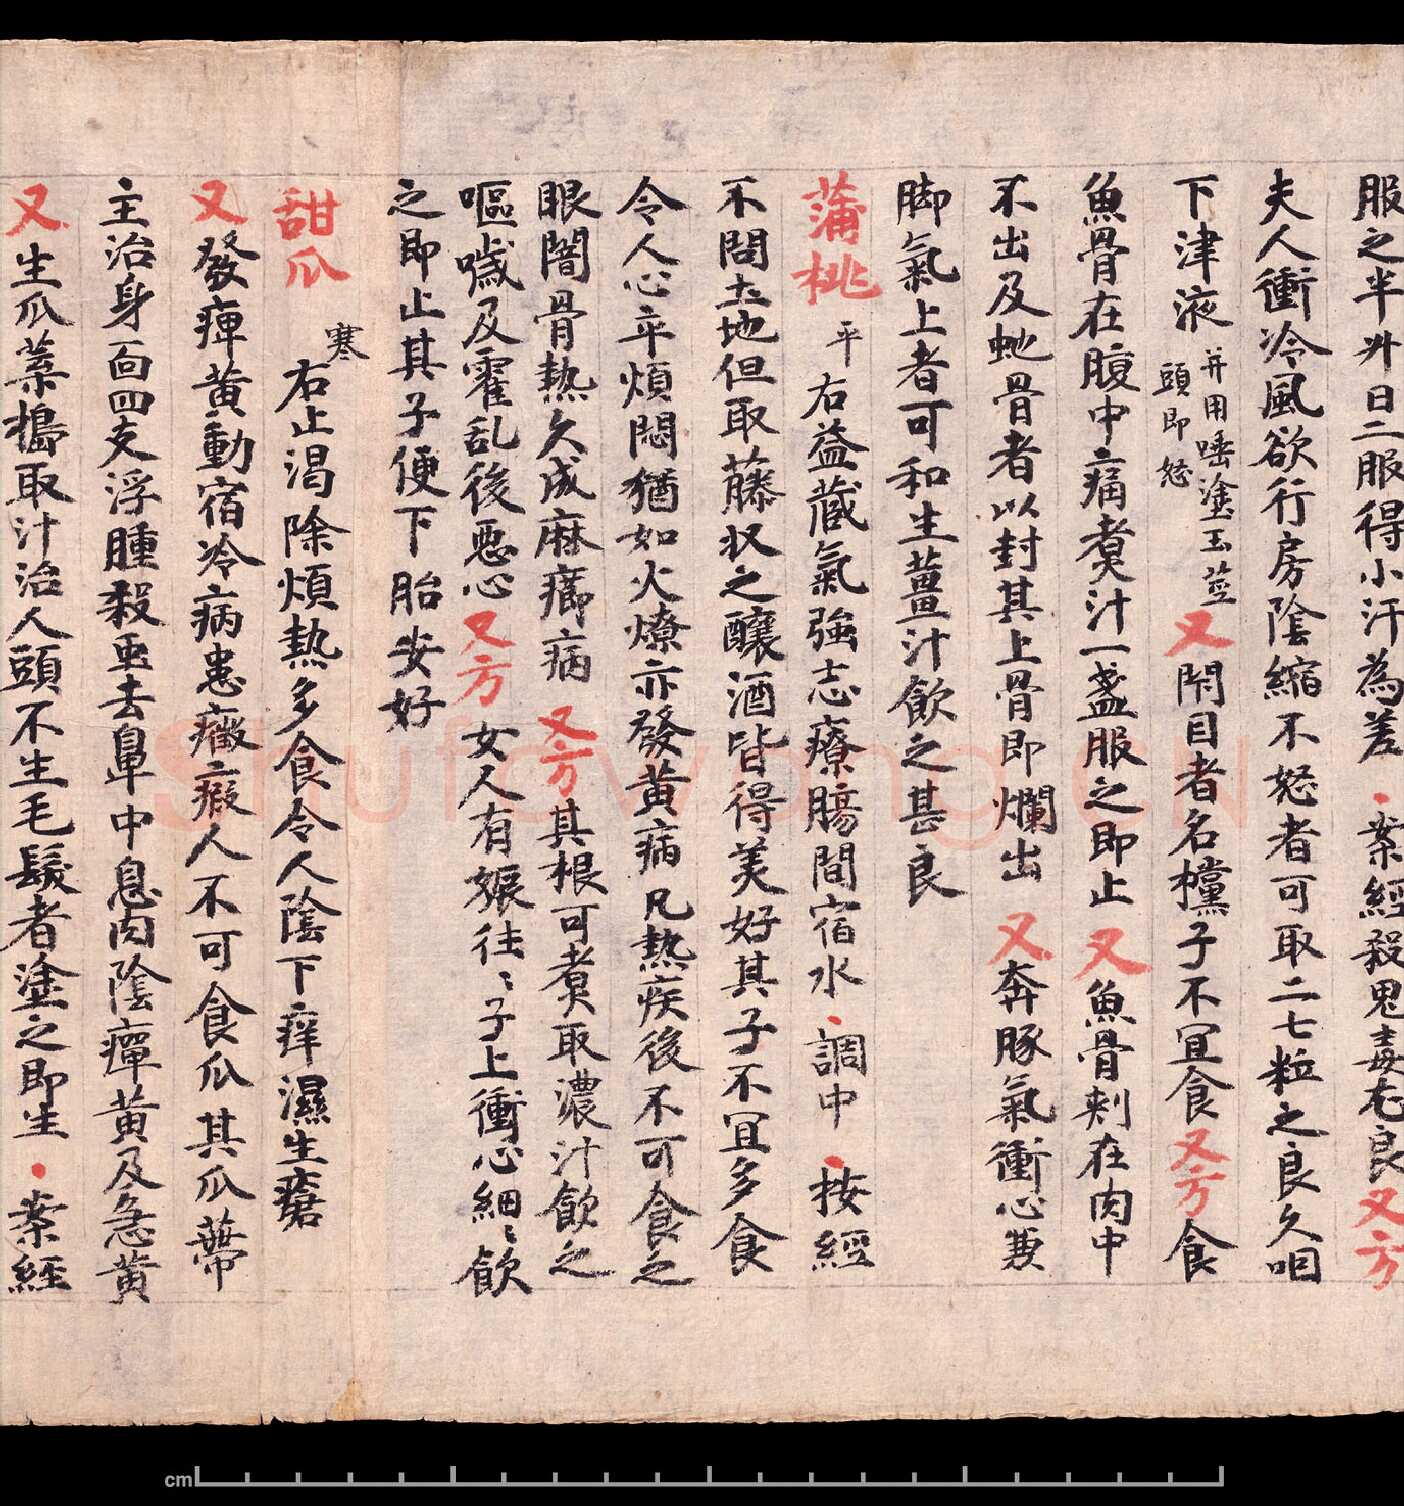 服之半升日二服得小汗為差・案經殺鬼毒尤良又方
夫人衝冷風欲行房陰縮不怒者可取二七粒之良久咽
下津液并用唾塗玉莖頭即怒又閇目者名欓子不宜食又方食
魚骨在腹中痛煑汁一盞服之即止又魚骨刾在肉中
不出及虵骨者以封其上骨即爛出又奔豚氣衝心兼
脚氣上者可和生薑汁飲之甚良
蒲桃平右益藏氣強志療腸間宿水・調中・按經
不問土地但取藤收之釀酒皆得美好其子不冝多食
令人心卒煩悶猶如火燎亦發黄病凡熱疾後不可食之
眼闇骨熱久成麻癤病又方其根可煑取濃汁飲之
嘔噦及霍乱後惡心又方女人有娠往〻子上衝心細〻飲
之即止其子便下胎安好
甜瓜寒右止渴除煩熱多食令人陰下痒濕生瘡
又發痺黄動宿冷病患癥瘕人不可食瓜其瓜蔕
主治身面四支浮腫殺虫去鼻中息肉陰癉黄及急黄
又生瓜葉搗取汁治人頭不生毛髮者塗之即生・案經
cm